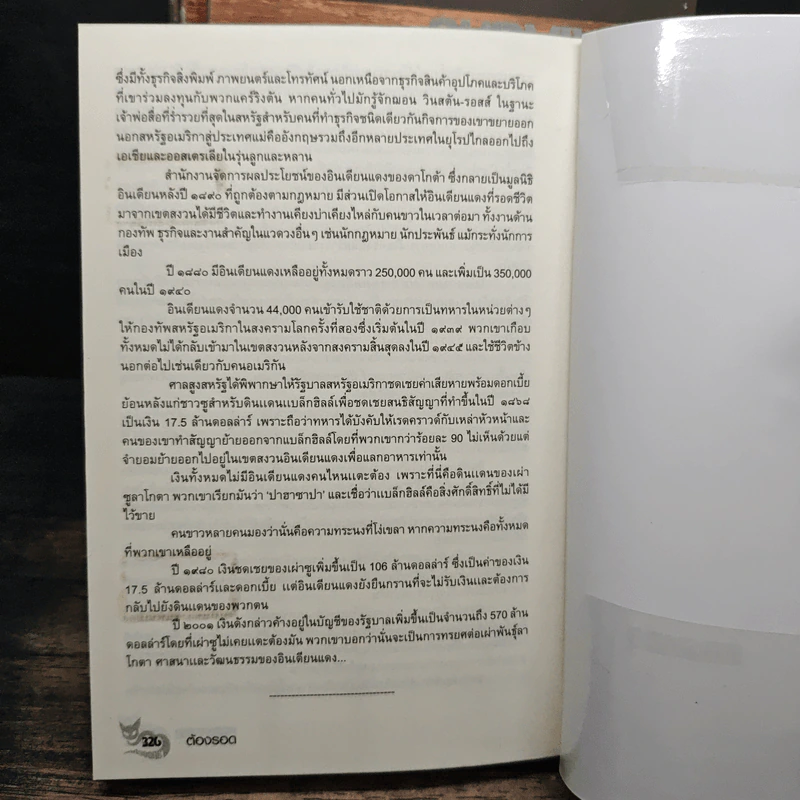 ซึ่งมีทั้งธุรกิจสิ่งพิมพ์ ภาพยนตร์และโทรทัศน์ นอกเหนือจากธุรกิจสินค้าอุปโภคและบริโภค
ที่เขาร่วมลงทุนกับพวกแคร์ริงตัน หากคนทั่วไปมักรู้จักฌอน วินสตัน-รอสส์ ในฐานะ
เจ้าพ่อสื่อที่ร่ำรวยที่สุดในสหรัฐสำหรับคนที่ทำธุรกิจชนิดเดียวกันกิจการของเขาขยายออก
นอกสหรัฐอเมริกาสู่ประเทศแม่คืออังกฤษรวมถึงอีกหลายประเทศในยุโรปไกลออกไปถึง
เอเชียและออสเตรเลียในรุ่นลูกและหลาน
สำนักงานจัดการผลประโยชน์ของอินเดียนแดงของดาโกต้า ซึ่งกลายเป็นมูลนิธิ
อินเดียนหลังปี ๑๘๙๐ ที่ถูกต้องตามกฎหมาย มีส่วนเปิดโอกาสให้อินเดียนแดงที่รอดชีวิต
มาจากเขตสงวนได้มีชีวิตและทำงานเคียงบ่าเคียงไหล่กับคนขาวในเวลาต่อมา ทั้งงานด้าน
กองทัพ ธุรกิจและงานสำคัญในแวดวงอื่นๆ เช่นนักกฎหมาย นักประพันธ์ แม้กระทั่งนักการ
เมือง
ปี ๑๘๘๐ มีอินเดียนแดงเหลืออยู่ทั้งหมดราว 250,000 คน และเพิ่มเป็น 350,000
คนในปี ๑๙๔๐
อินเดียนแดงจำนวน 44,000 คนเข้ารับใช้ชาติด้วยการเป็นทหารในหน่วยต่างๆ
ให้กองทัพสหรัฐอเมริกาในสงครามโลกครั้งที่สองซึ่งเริ่มต้นในปี ๑๙๓๙ พวกเขาเกือบ
ทั้งหมดไม่ได้กลับเข้ามาในเขตสงวนหลังจากสงครามสิ้นสุดลงในปี ๑๙๔๕ และใช้ชีวิตข้าง
นอกต่อไปเช่นเดียวกับคนอเมริกัน
ศาลสูงสหรัฐได้พิพากษาให้รัฐบาลสหรัฐอเมริกาชดเชยค่าเสียหายพร้อมดอกเบี้ย
ย้อนหลังแก่ชาวซูสำหรับดินแดนแบล็กฮิลล์เพื่อชดเชยสนธิสัญญาที่ทำขึ้นในปี ๑๘๖๘
เป็นเงิน 17.5 ล้านดอลล่าร์ เพราะถือว่าทหารได้บังคับให้เรดคราวด์กับเหล่าหัวหน้าและ
คนของเขาทำสัญญาย้ายออกจากแบล็กฮิลล์โดยที่พวกเขากว่าร้อยละ 90 ไม่เห็นด้วยแต่
จำยอมย้ายออกไปอยู่ในเขตสงวนอินเดียนแดงเพื่อแลกอาหารเท่านั้น
เงินทั้งหมดไม่มีอินเดียนแดงคนไหนแตะต้อง เพราะที่นี่คือดินแดนของเผ่า
ซูลาโกตา พวกเขาเรียกมันว่า 'ปาฮาซาปา' และเชื่อว่าแบล็กฮิลล์คือสิ่งศักดิ์สิทธิ์ที่ไม่ได้มี
ไว้ขาย
คนขาวหลายคนมองว่านั่นคือความทระนงที่โง่เขลา หากความทระนงคือทั้งหมด
ที่พวกเขาเหลืออยู่
ปี ๑๙๘๐ เงินชดเชยของเผ่าซูเพิ่มขึ้นเป็น 106 ล้านดอลล่าร์ ซึ่งเป็นค่าของเงิน
17.5 ล้านดอลล่าร์และดอกเบี้ย แต่อินเดียนแดงยังยืนกรานที่จะไม่รับเงินและต้องการ
กลับไปยังดินแดนของพวกตน
ปี ๒๐๐๑ เงินดังกล่าวค้างอยู่ในบัญชีของรัฐบาลเพิ่มขึ้นเป็นจำนวนถึง 570 ล้าน
ดอลล่าร์โดยที่เผ่าซูไม่เคยแตะต้องมัน พวกเขาบอกว่านั่นจะเป็นการทรยศต่อเผ่าพันธุ์ลา
โกตา ศาสนาและวัฒนธรรมของอินเดียนแดง...
326 ต้องรอด